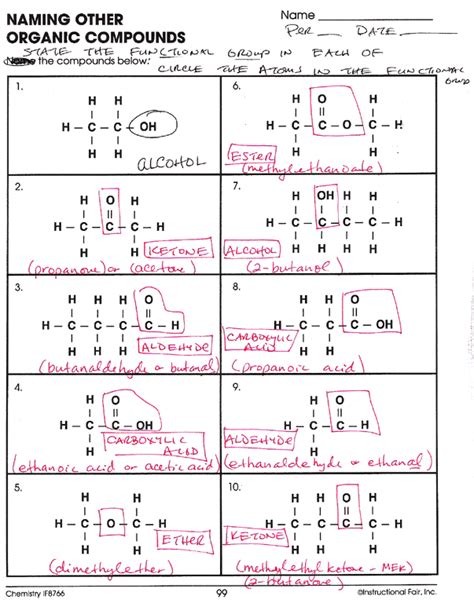 NAMING OTHER
ORGANIC COMPOUNDS
Name
PER DATE
STATE THE FUNCTIONAL GROUP IN EACH OF
the compounds below:
CIRCLE THE ATOMS IN THE FUNCTIONAL
GROUP
1.
H H
H - C - C - OH
H H
ALCOHOL
2.
H O H
H - C - C - C - H
H H
KETONE
(propanone) or (acetone)
3.
H H H O
H - C - C - C - C - H
H H H
ALDEHYDE
(butanaldehyde or butanal)
4.
H O
H - C - C - OH
H
CARBOXYLIC
ACID
(ethanoic acid or acetic acid)
5.
H H
H - C - O - C - H
H H
ETHER
(dimethylether)
6.
H O H
H - C - C - O - C - H
H H
ESTER
(methylethanoate)
7.
H OH H H
H - C - C - C - C - H
H H H H
ALCOHOL
(2-butanol)
8.
H H O
H - C - C - C - OH
H H
CARBOXYLIC
ACID
(propanoic acid)
9.
H O
H - C - C - H
H
ALDEHYDE
(ethanaldehyde or ethanal)
10.
H H O H
H - C - C - C - C - H
H H H
KETONE
(methylethyl ketone - MEK)
(2-butanone)
Chemistry IF8766
99
©Instructional Fair, Inc.